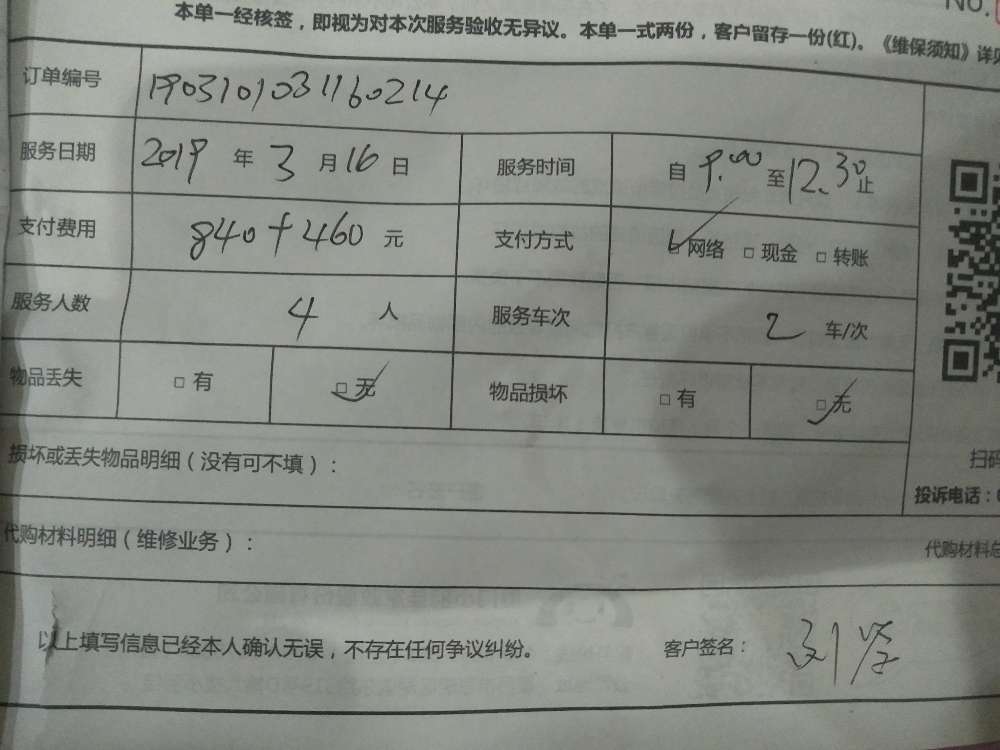 NO.
本单一经核签，即视为对本次服务验收无异议。本单一式两份，客户留存一份(红)。《维保须知》详见
订单编号 1903101031160214
服务日期 2019 年 3 月 16 日 服务时间 自 9.00 至 12.30 止
支付费用 840+460 元 支付方式 ☑网络 □现金 □转账
服务人数 4 人 服务车次 2 车/次
物品丢失 □有 ☑无 物品损坏 □有 ☑无
损坏或丢失物品明细（没有可不填）：
扫码
投诉电话：
代购材料明细（维修业务）： 代购材料总
以上填写信息已经本人确认无误，不存在任何争议纠纷。 客户签名：刘